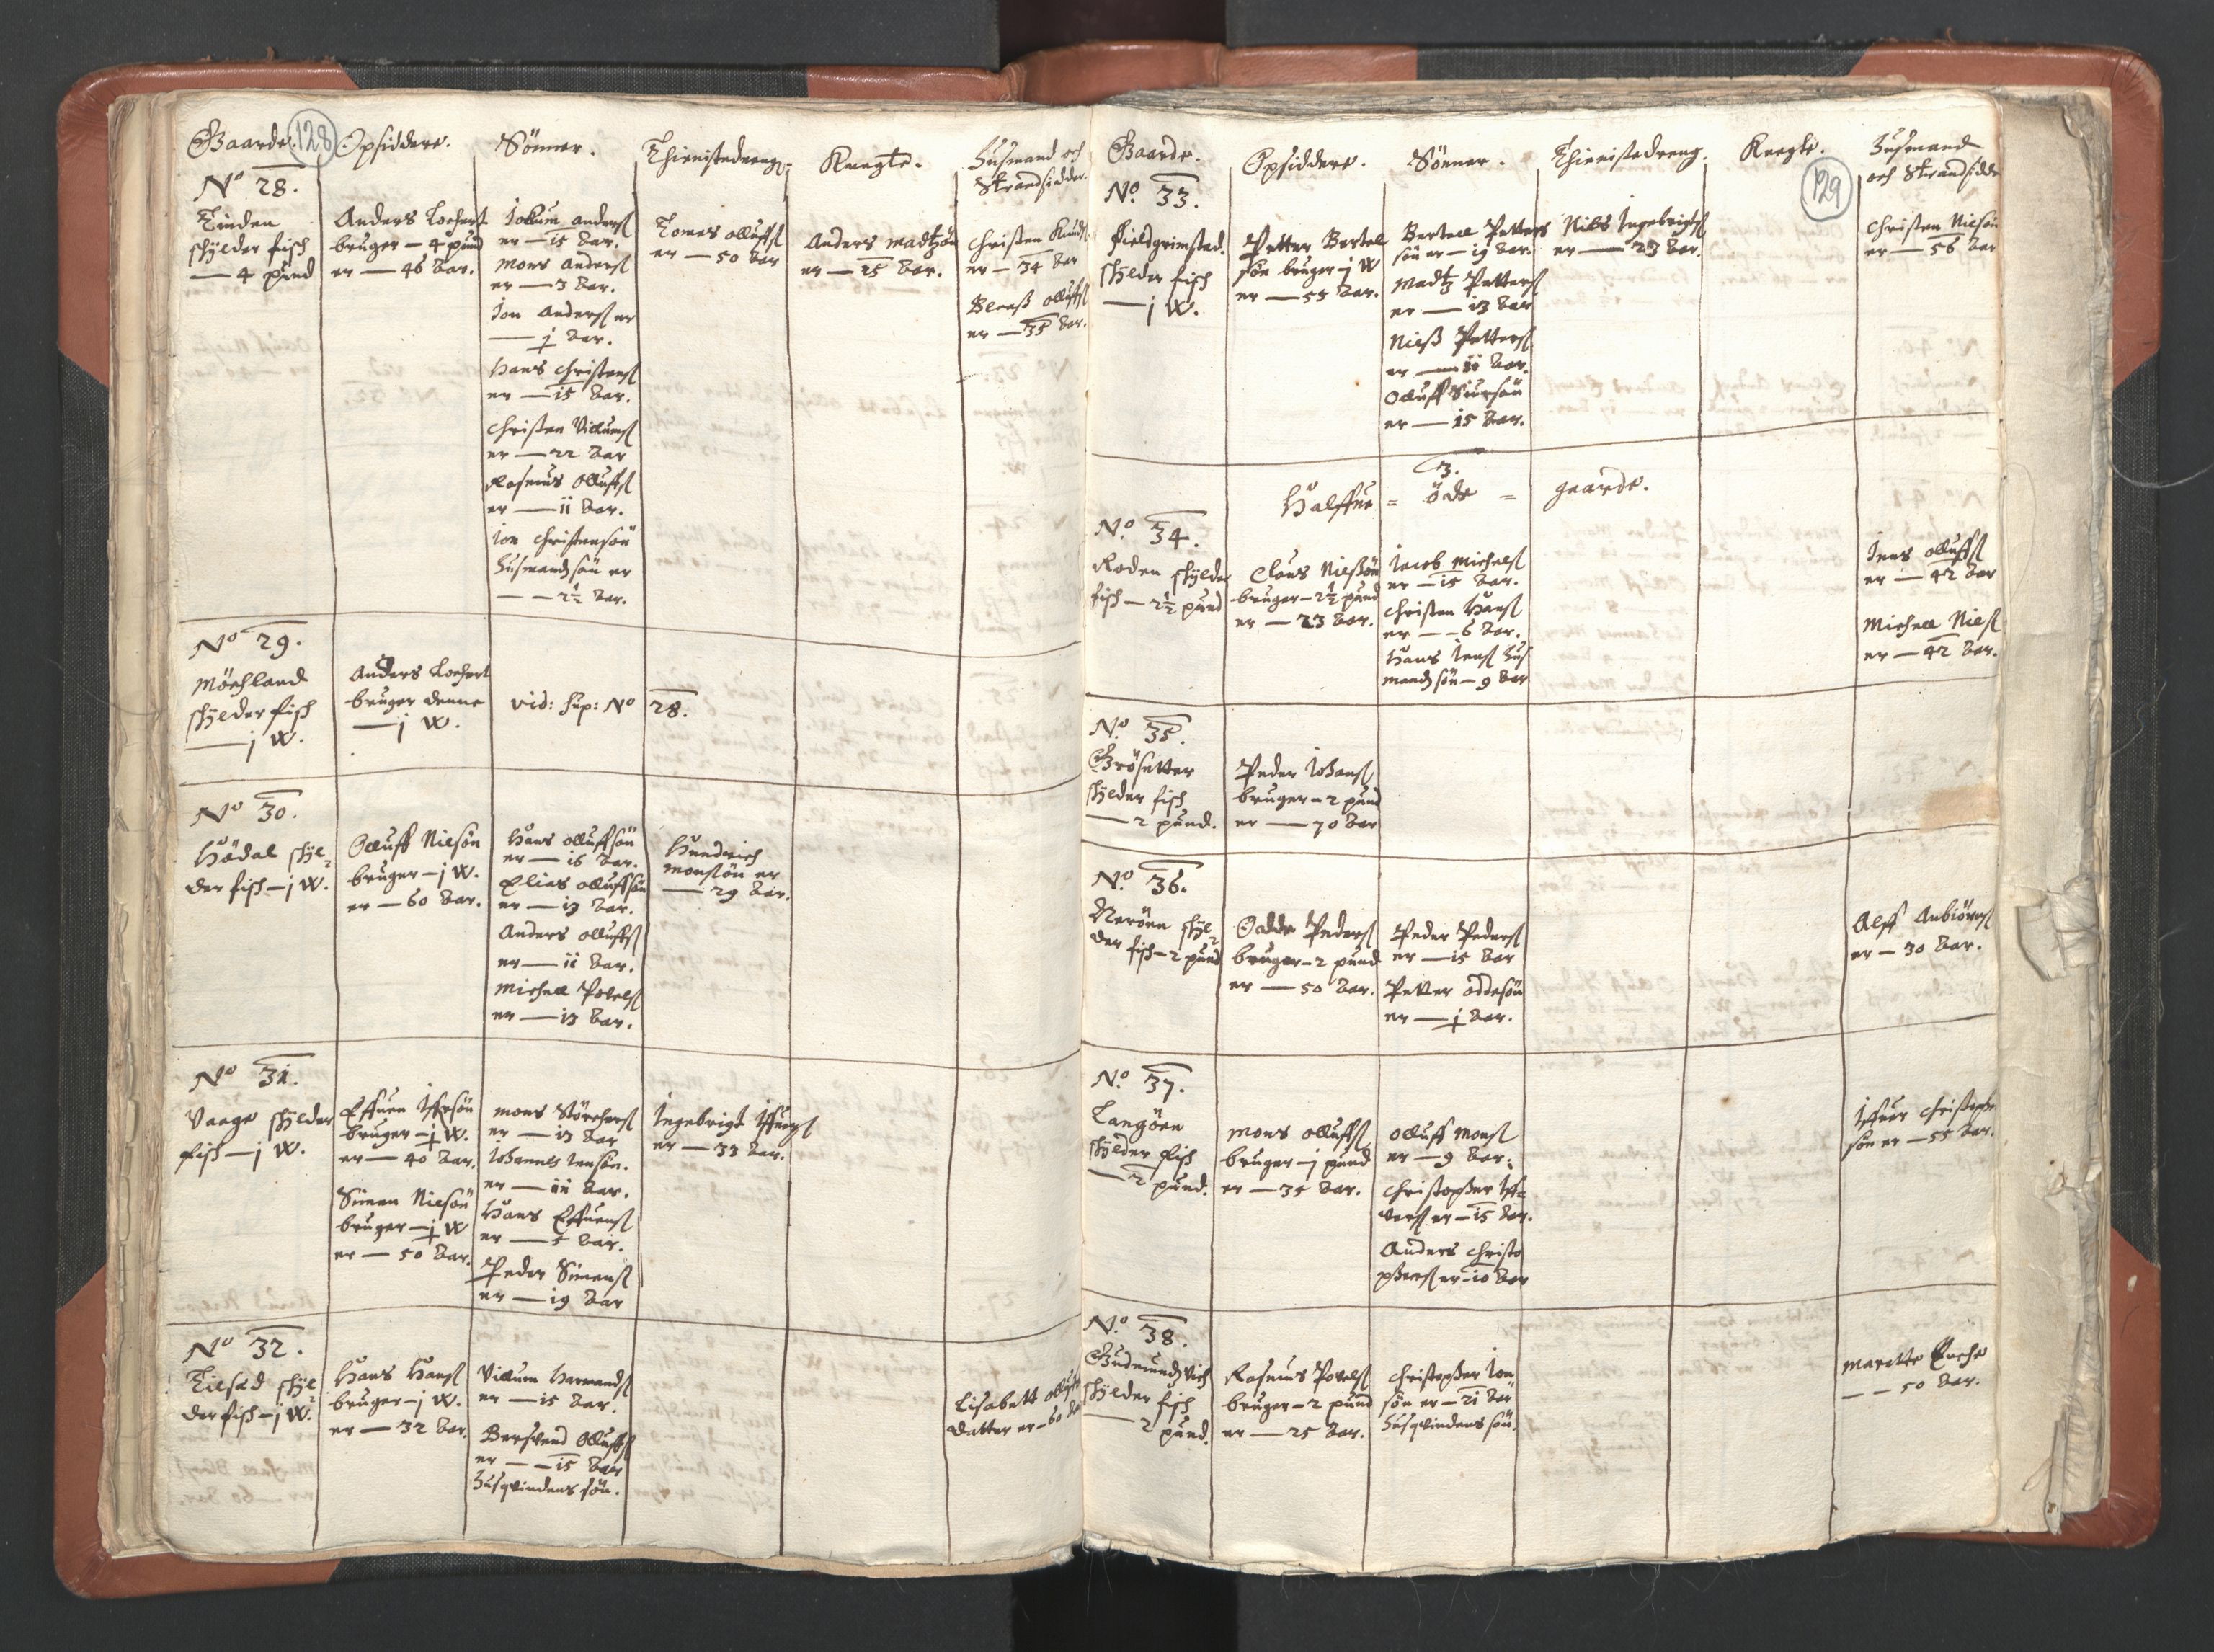 Gaarde. 128 Opsiddere. Sönner. Thienistedreng. Knegte. Husmend och
Strandsidder.
No 28.
Tinden
schylder fisch
— 4 pund
Anders Lochert
bruger — 4 pund
er — 46 Aar.
Jollum Anders
er — 15 Aar.
Mons Anders
er — 3 Aar.
Jon Anders er
— j Aar.
Hans Christens
er — 15 Aar.
Christen Villums
er — 22 Aar
Rasmus Olluffs
er — ii Aar.
Jon Christensön
Husmands sön er
— — 2½ Aar.
Tomes Olluffs
er — 50 Aar
Anders Madtzön
er — 25 Aar.
Christen Knuds
er — 34 Aar
Olluffs
er — 35 Aar.
No 29.
Möchland
schylder fisch
— j W.
Anders Lochert
bruger denne
— j W.
vid: sup: No 28.
No 30.
Hödal schyl=
der fisch — j W.
Olluff Nielsön
bruger — j W.
er — 60 Aar.
Hans Olluffsön
er — 16 Aar.
Elias Olluffsön
er — 13 Aar.
Anders Olluffs
er — ii Aar.
Michell Povels
er — 13 Aar.
Hendrich
Monssön er
— 29 Aar.
No 31.
Vaage schylder
fisch — j W.
Effuen Iffersön
bruger — j W.
er — 40 Aar.
Simen Nielsön
bruger — j W
er — 50 Aar.
Mons Störchers
er — 13 Aar
Johannes Jensön.
er — iii Aar.
Hans Effuens
er — 5 Aar.
Peder Simens
er — 19 Aar
Ingebrigt Iffuers
er — 33 Aar.
No 32.
Tilsed schyl=
der fisch — j W.
Hans Hans
bruger — j W.
er — 32 Aar.
Villum Harmands
er — 15 Aar.
Bersvend Olluffs
er — — 15 Aar
Husqvindens sön.
Lisabett Olluffs
datter er — 60 Aar
Gaarde. Opsiddere. Sönner. Thienistedreng. Knegte. Husmend
och Strandsidder
129
No. 33.
Fieldgrimstad.
schylder fisch
— j W.
Petter Bertel
sön bruger — j W
er — 55 Aar.
Bertell Petters
sön er — 19 Aar.
Madtz Petters
er — 13 Aar
Nielß Petters
er — ii Aar.
Olluff Siursön
er — 15 Aar.
Nils Ingebrigts
er — 23 Aar.
Christen Nielsön
er — 56 Aar
3.
Halffue = öde = gaarde.
No. 34.
Roden schylder
fisch — 2½ pund
Claus Nielßön
bruger — 2½ pund
er — 23 Aar.
Jacob Michels
er — 15 Aar.
Christen Hans
er — — 6 Aar.
Hans Jens Hus
mands sön — 9 Aar
Jens Olluffs
er — 42 Aar
Michell Niels
er — 42 Aar.
No. 35.
Grösetter
schylder fisch
— 2 pund.
Peder Johans
bruger — 2 pund
er — 70 Aar
No. 36.
Neröen schyl=
der fisch — 2 pund
Odde Peders
bruger — 2 pund
er — 50 Aar.
Peder Peders
er — 15 Aar
Petter Oddesön
er — j Aar.
Alff Anbiörns
er — 30 Aar.
No. 37.
Langöen
schylder fisch
— 2 pund.
Mons Olluffs
bruger — j pund
er — 35 Aar.
Olluff Mons
er — 9 Aar.
Christopher Iff=
vers er — 15 Aar.
Anders Christo
phers er — 10 Aar
Iffuer Christopher
sön er — 55 Aar.
No. 38.
Gudmundzvich
schylder fisch
— 2 pund.
Rasmus Povels
bruger — 2 pund
er — 25 Aar.
Christopher Jon
sön er — 21 Aar
Husqvindens sön.
Maritte Enche
— — 50 Aar.